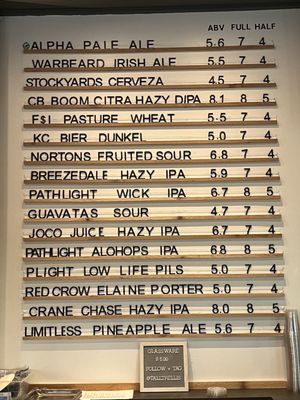 ABV FULL HALF
ALPHA PALE ALE 5.6 7 4
WARBEARD IRISH ALE 5.5 7 4
STOCKYARDS CERVEZA 4.5 7 4
CB BOOM CITRA HAZY DIPA 8.1 8 5
F&I PASTURE WHEAT 5.5 7 4
KC BIER DUNKEL 5.0 7 4
NORTONS FRUITED SOUR 6.8 7 4
BREEZEDALE HAZY IPA 5.9 7 4
PATHLIGHT WICK IPA 6.7 8 5
GUAVATAS SOUR 4.7 7 4
JOCO JUICE HAZY IPA 6.7 7 4
PATHLIGHT ALOHOPS IPA 6.8 8 5
PLIGHT LOW LIFE PILS 5.0 7 4
RED CROW ELAINE PORTER 5.0 7 4
CRANE CHASE HAZY IPA 8.0 8 5
LIMITLESS PINEAPPLE ALE 5.6 7 4
GLASSWARE
FOLLOW + TAG